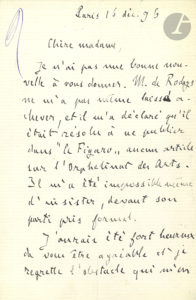 Paris 15 déc. 79
Chère madame,
Je n'ai pas une bonne nou-
velle à vous donner. M. de Rodays
ne m'a pas même laissé a-
chever, et il m'a déclaré qu'il
était résolu à ne publier
dans "le Figaro", aucun article
sur l'Orphelinat des Arts.
Il m'a été impossible même
d'insister, devant son
parti pris formel.
J'aurais été fort heureux
de vous être agréable et je
regrette l'obstacle qui m'en